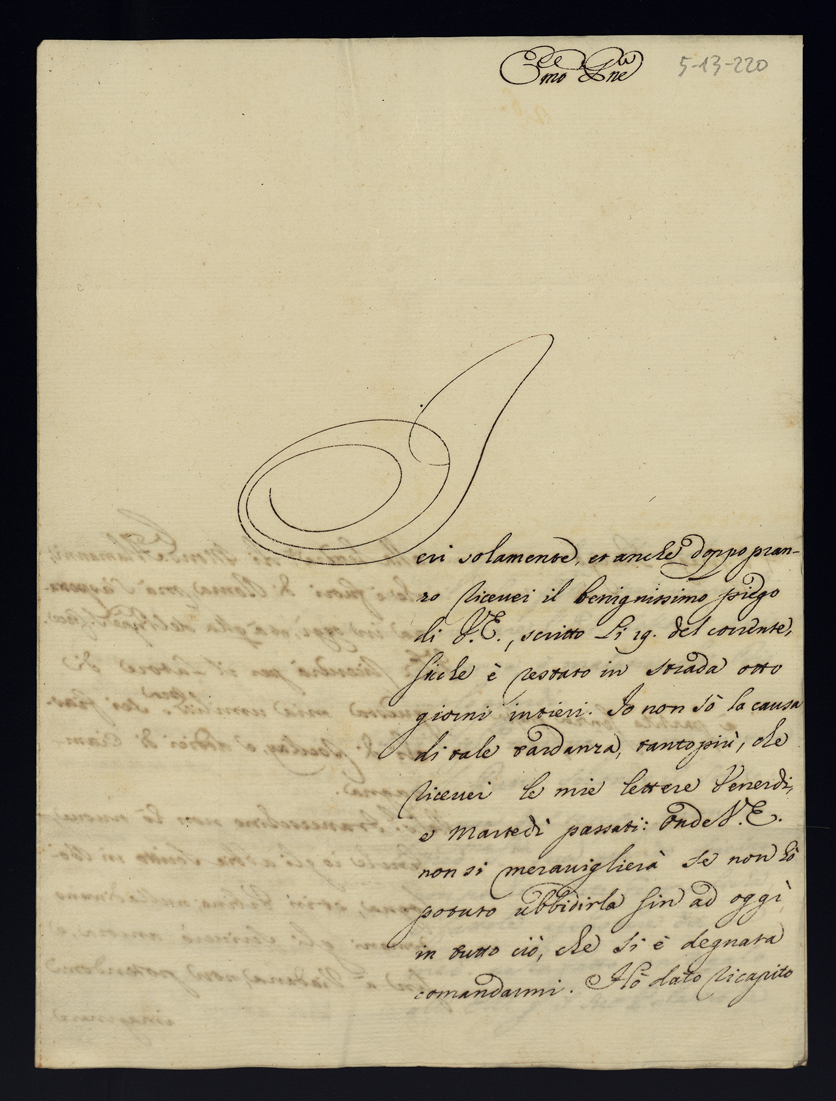 Ecc.mo Pne
5-13-220
Ieri solamente, et anche doppo pran-
zo ricevei il benignissimo piego
di V.E., scritto li 19. del corrente,
siche è restato in strada otto
giorni intieri. Io non sò la causa
di tale tardanza, tanto più, che
ricevei le mie lettere Venerdì,
e Martedì passati: onde V.E.
non si meraviglierà se non hò
potuto ubbidirla sin ad oggi
in tutto ciò, che si è degnata
comandarmi. Hò dato ricapito